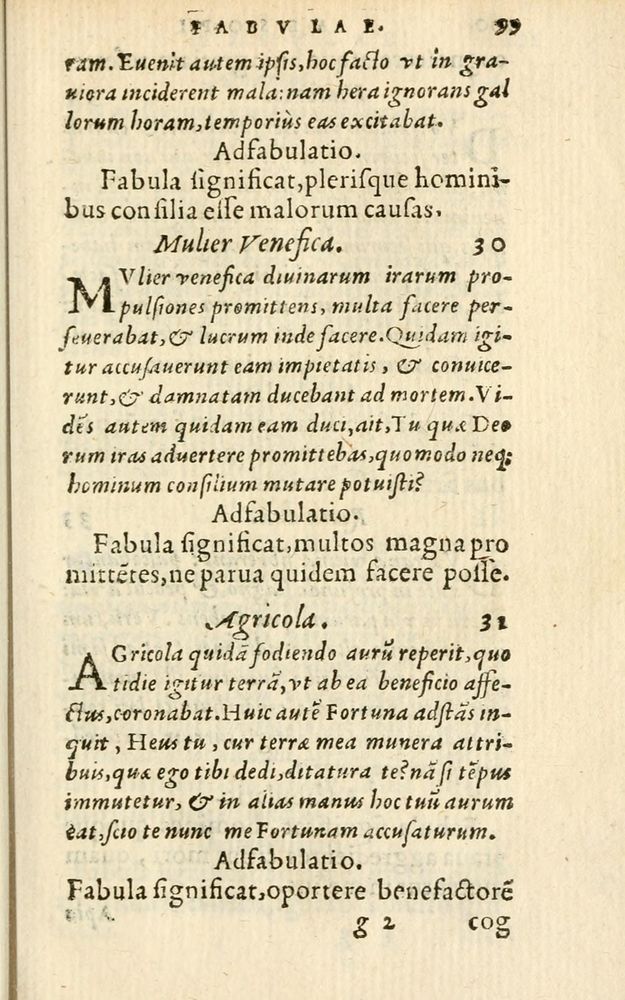 FABVLAE. 99
ram. Euenit autem ipsis, hoc facto vt in gra-
uiora inciderent mala: nam hera ignorans gal
lorum horam, temporiùs eas excitabat.
Adfabulatio.
Fabula ſignificat, pleriſque homini-
bus conſilia eſſe malorum cauſas.
Mulier Venefica. 30
MVlier venefica diuinarum irarum pro-
pulſiones promittens, multa facere per-
ſeuerabat, & lucrum inde facere. Quidam igi-
tur accuſauerunt eam impietatis, & conuice-
runt, & damnatam ducebant ad mortem. Vi-
dẽs autem quidam eam duci, ait, Tu quæ Deo
rum iras aduertere promittebas, quomodo neq;
hominum conſilium mutare potuiſti?
Adfabulatio.
Fabula ſignificat, multos magna pro
mittẽtes, ne parua quidem facere poſſe.
Agricola. 31
AGricola quidã fodiendo aurũ reperit, quo
tidie igitur terrã, vt ab ea beneficio affe-
ctus, coronabat. Huic autẽ Fortuna adſtãs in-
quit, Heus tu, cur terræ mea munera attri-
buis, quæ ego tibi dedi, ditatura te? nã ſi tẽpus
immutetur, & in alias manus hoc tuũ aurum
eat, ſcio te nunc me Fortunam accuſaturum.
Adfabulatio.
Fabula ſignificat, oportere benefactorẽ
g 2 cog